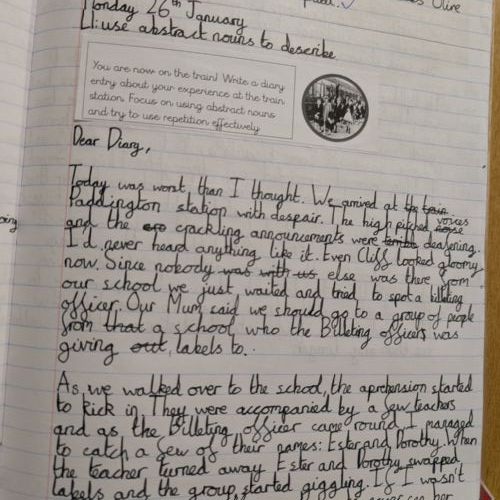 Olive
Monday 26th January
LI: use abstract nouns to describe
You are now on the train! Write a diary
entry about your experience at the train
station. Focus on using abstract nouns
and try to use repetition effectively
Dear Diary,
Today was worst, than I thought. We arrived at the train
Paddington station with despair. The high pitched noise voices
and the crackling announcements were terrible deafening.
I'd never heard anything like it. Even Cliff looked gloomy
now. Since nobody was with us else was there from
our school we just waited and tried to spot a billeting
officer. Our Mum said we should go to a group of people
from that a school who the Billeting officers was
giving out labels to.
As we walked over to the school, the aprehension started
to kick in. They were accompanied by a few teachers
and as the Billeting officer came round I managed
to catch a few of their names: Ester and Dorothy. When
the teacher turned away Ester and Dorothy swapped
labels and the group started giggling. If I wasn't